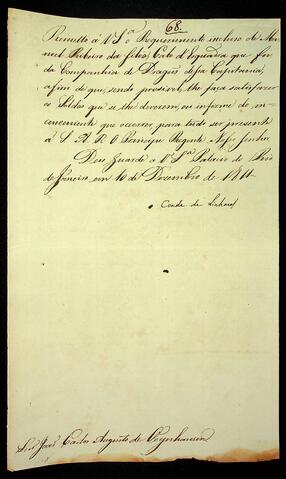 68.
Remetto á V. Sª. o Requerimento incluso de Ma
noel Ribeiro da Silva, Cabo d'Esquadra que foi
da Companhia de Dragões dessa Capitania,
afim de que, sendo possivel, lhe faça satisfazer
os Soldos que se lhe deverem, ou informe do in-
conveniente que occorrer, para tudo ser presente
á S. A. R. O Principe Regente Nosso Senhor.
Deos Guarde a V. Sª. Palacio do Rio
de Janeiro em 10 de Dezembro de 1811
Conde de Linhares
Snr. João Carlos Augusto de Oeynhausen